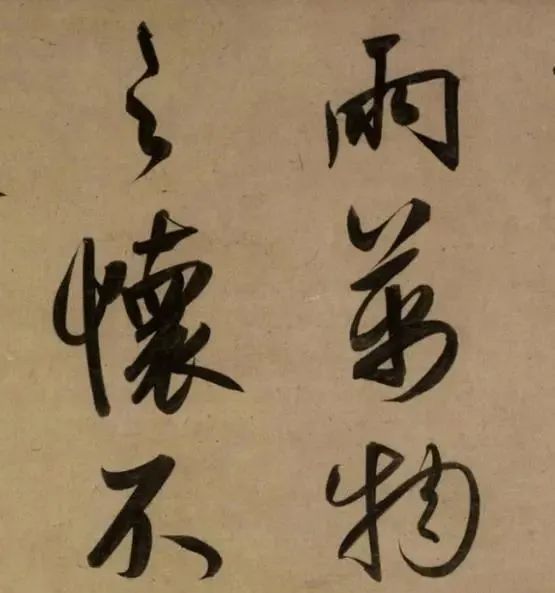 雨萬物
之懷不